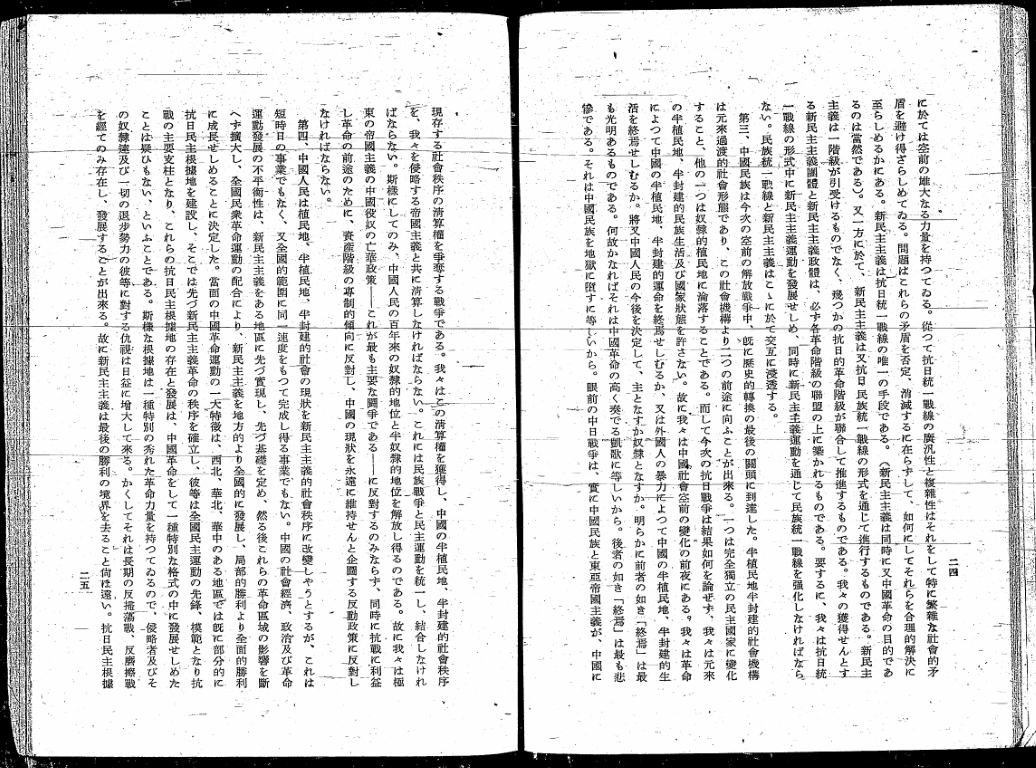 に於ては空前の雄大なる力量を持つてゐる。從つて抗日統一戰線の廣汎性と複雜性はそれをして特に繁雜な社會的矛
盾を避け得ざらしめてゐる。問題はこれらの矛盾を否定、消滅するに在らずして、如何にしてそれらを合理的解決に
至らしめるかにある。新民主主義は抗日統一戰線の唯一の手段である。(新民主主義は同時に又中國革命の目的であ
るのは當然である)。又一方に於て、新民主主義は又抗日民族統一戰線の形式を通じて進行するものである。新民主
主義は一階級が引受けるものでなく、幾つかの抗日的革命階級が聯合して推進するものである。我々の獲得せんとす
る新民主主義團體と新民主主義政體は、必ず各革命階級の聯盟の上に築かれるものである。要するに、我々は抗日統
一戰線の形式中に新民主主義運動を發展せしめ、同時に新民主主義運動を通じて民族統一戰線を强化しなければなら
ない。民族統一戰線と新民主主義はこゝに於て交互に浸透する。
第三、中國民族は今次の空前の解放戰爭中、既に歷史的轉換の最後の關頭に到達した。半植民地半封建的社會機構
は元來過渡的社會形態であり、この社會機構より二つの前途に向ふことが出來る。一つは完全獨立の民主國家に變化
すること、他の一つは奴隷的植民地に淪落することである。而して今次の抗日戰爭は結果如何を論ぜず、我々は元來
の半植民地、半封建的民族生活及び國家狀態を許さない。故に我々は中國社會空前の變化の前夜にある。我々は革命
によつて中國の半植民地、半封建的運命を終焉せしむるか、又は外國人の暴力によつて中國の半植民地、半封建的生
活を終焉せしむるか。將又中國人民の今後を決定して、主となすか奴隷となすか。明らかに前者の如き「終焉」は最
も光明あるものである。何故かなればそれは中國革命の高く奏でる凱歌に等しいから。後者の如き「終焉」は最も悲
慘である。それは中國民族を地獄に墮すに等しいから。眼前の中日戰爭は、實に中國民族と東亞帝國主義が、中國に
二四
現存する社會秩序の清算權を爭悲する戰爭である。我々はこの清算權を獲得し、中國の半植民地、半封建的社會秩序
を、我々を侵略する帝國主義と共に清算しなければならない。これには民族戰爭と民主運動を統一し、結合しなけれ
ばならない。斯樣にしてのみ、中國人民の百年來の奴隷的地位と半奴隷的地位を解放し得るのである。故に我々は極
東の帝國主義の中國役奴の亡華政策——これが最も主要な鬪爭である——に反對するのみならず、同時に抗戰に利益
し革命の前途のために、資產階級の專制的傾向に反對し、中國の現狀を永遠に維持せんと企圖する反動政策に反對し
なければならない。
第四、中國人民は植民地、半植民地、半封建的社會の現狀を新民主主義的社會秩序に改變しやうとするが、これは
短時日の事業でもなく、又全國的範圍に同一速度をもつて完成し得る事業でもない。中國の社會經濟、政治及び革命
運動發展の不平衡性は、新民主主義をある地區に先づ實現し、先づ基礎を定め、然る後これらの革命區域の影響を斷
へず擴大し、全國民衆革命運動の配合により、新民主主義を地方的より全國的に發展し、局部的勝利より全面的勝利
に成長せしめることに決定した。當面の中國革命運動の一大特徵は、西北、華北、華中のある地區では既に部分的に
抗日民主根據地を建設し、そこでは先づ新民主主義革命の秩序を確立し、彼等は全國民主運動の先鋒、模範となり抗
戰の主要支柱となり、これらの抗日民主根據地の存在と發展は、中國革命をして一種特別な格式の中に發展せしめた
ことは疑ひもない、といふことである。斯樣な根據地は一種特別の秀れた革命力量を持つてゐるので、侵略者及びそ
の奴隷達及び一切の退步勢力の彼等に對する仇視は日益に增大して來る。かくしてそれは長期の反掃蕩戰、反磨擦戰
を經てのみ存在し、發展することが出來る。故に新民主主義は最後の勝利の境界を去ること尙ほ遠い。抗日民主根據
二五